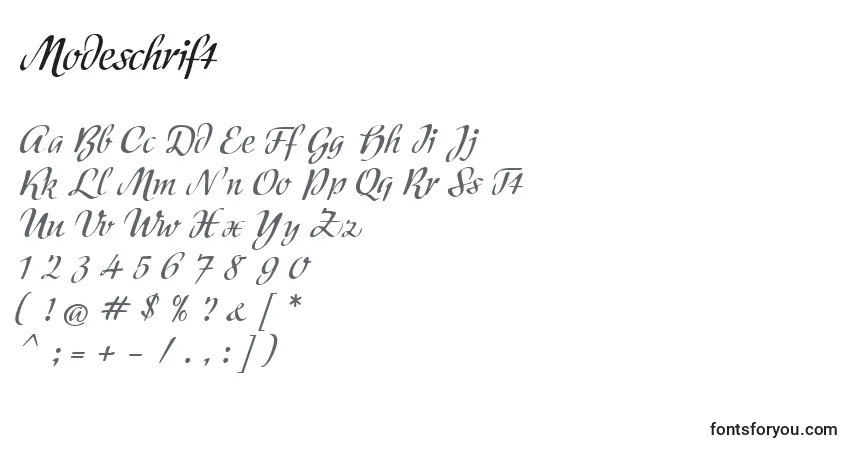 Modeschrift
Aa Bb Cc Dd Ee Ff Gg Hh Ii Jj
Kk Ll Mm Nn Oo Pp Qq Rr Ss Tt
Uu Vv Ww Xx Yy Zz
1 2 3 4 5 6 7 8 9 0
( ! @ # $ % ? & [ *
^ ; = + - / . , : ] )
fontsforyou.com